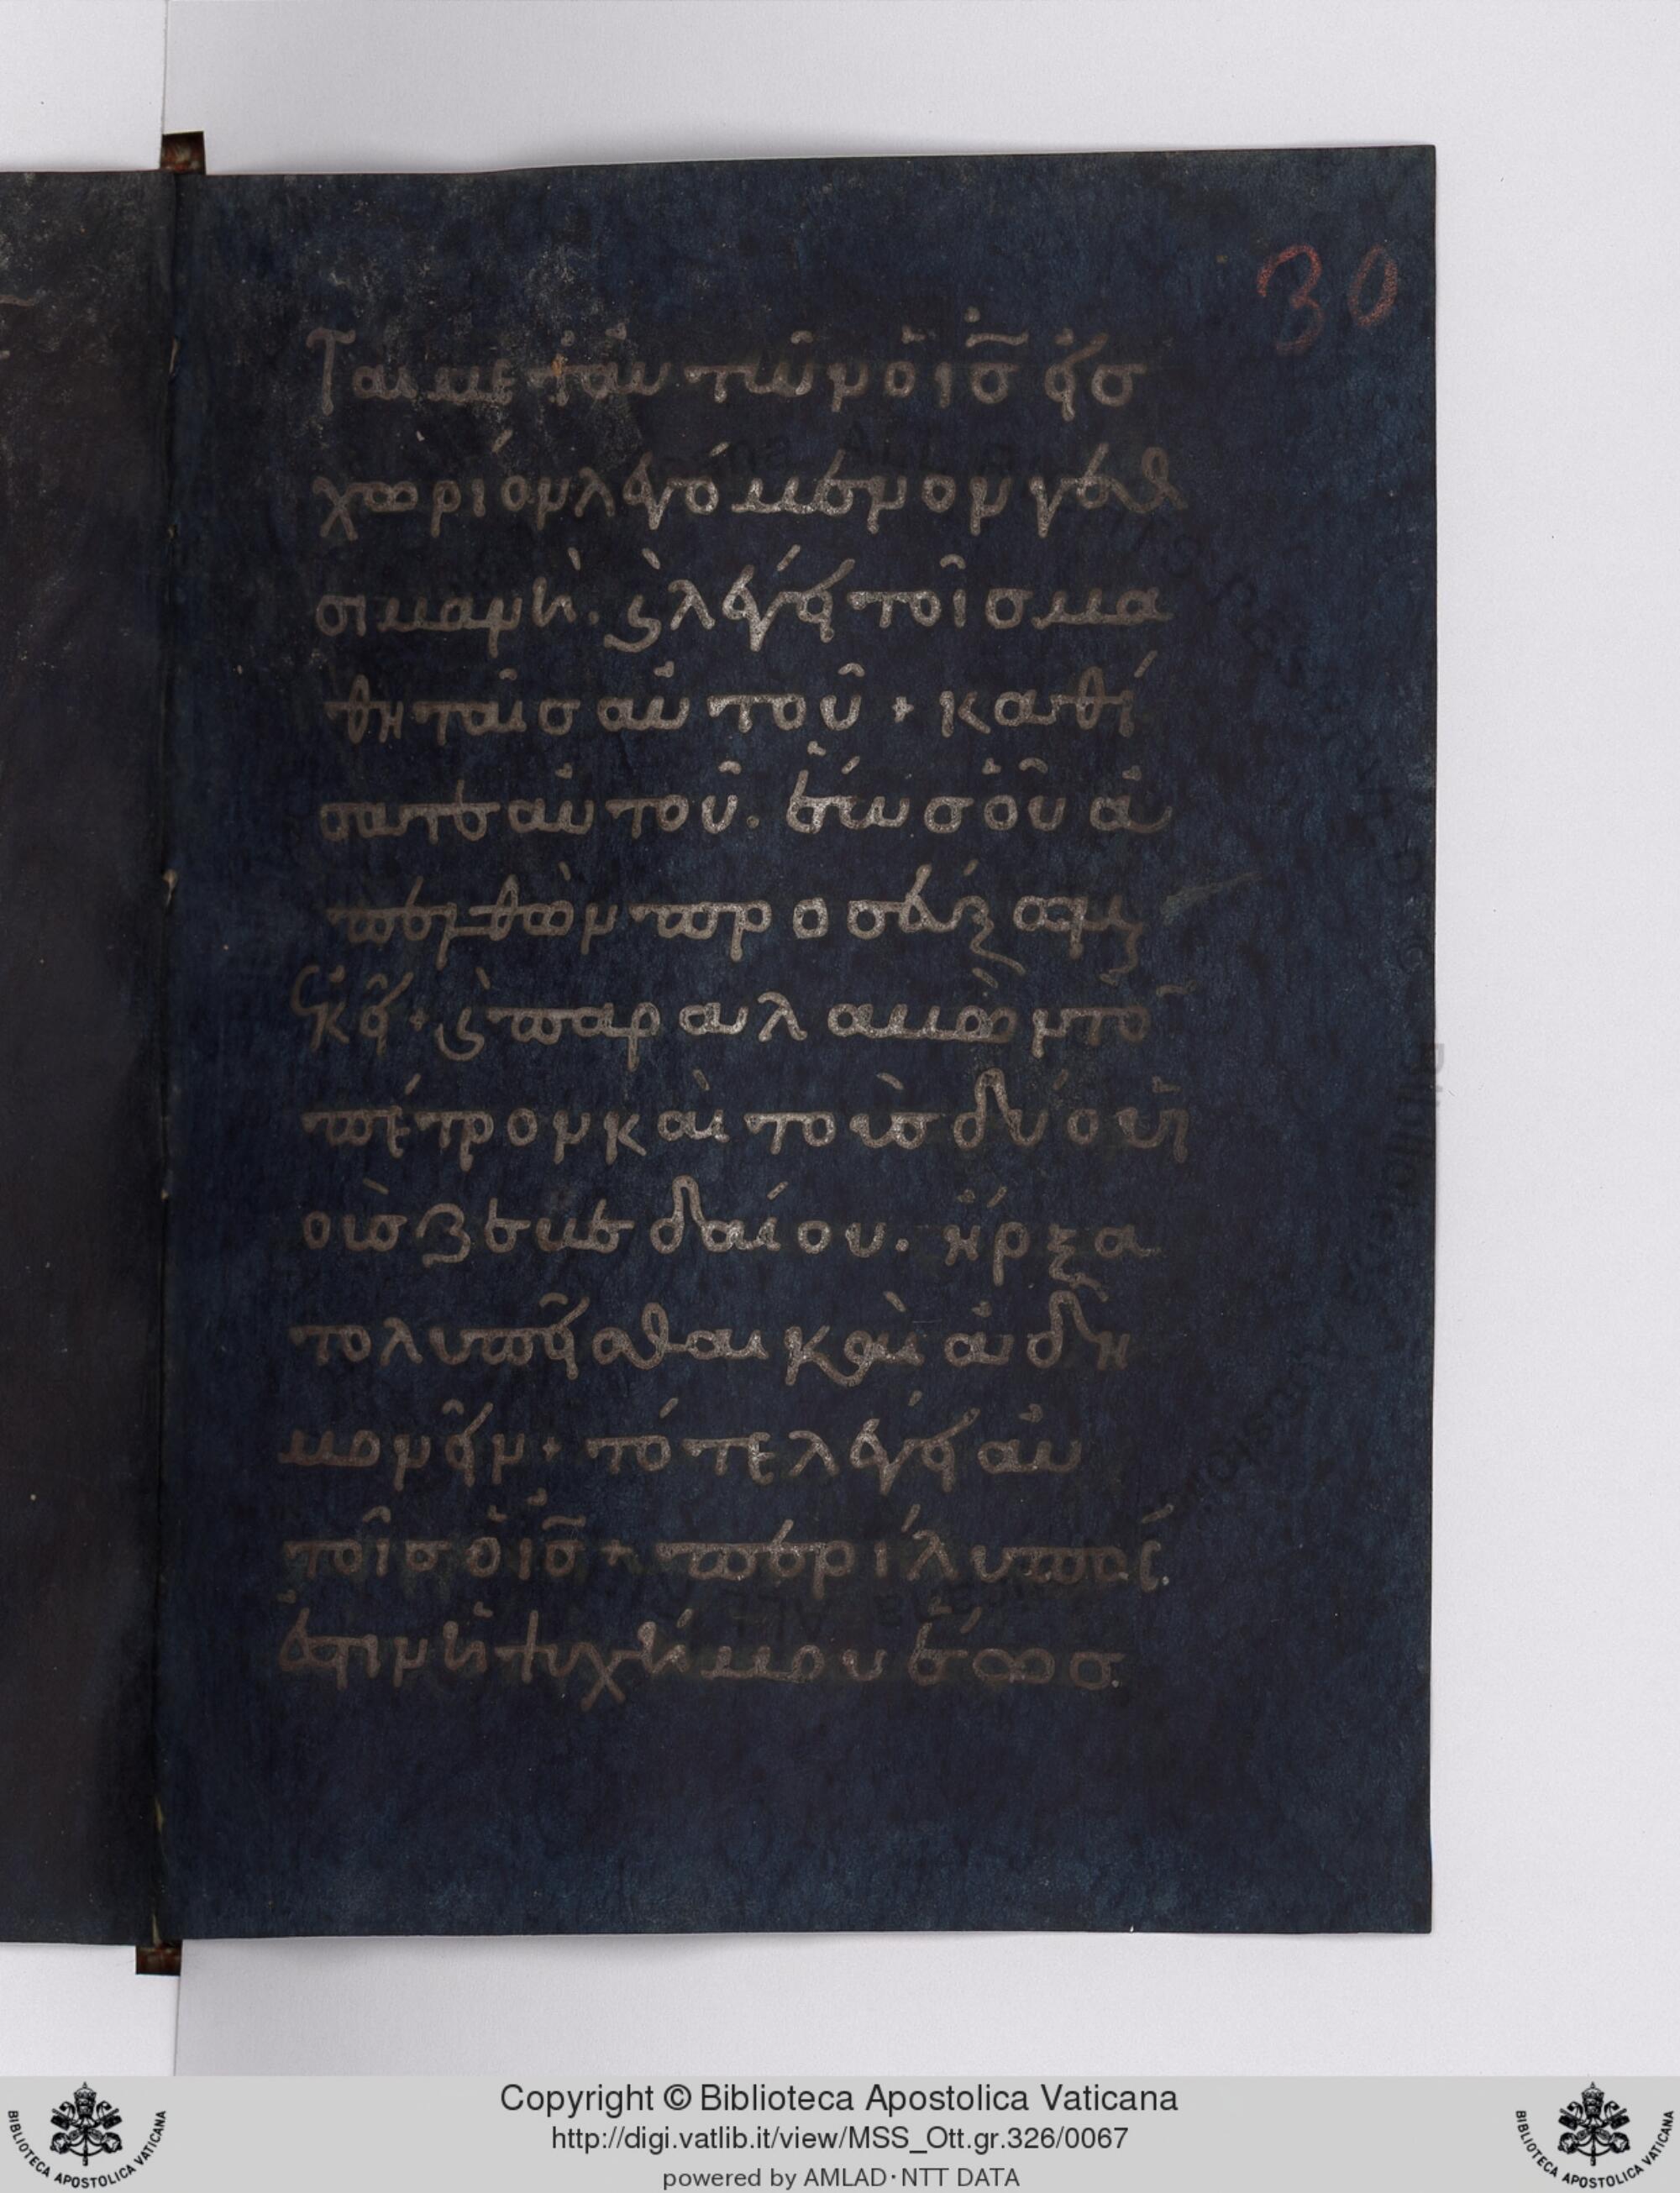 30
ται μετ αὐτῶν ὁ ι̅ς̅ εἰς
χωρίον λεγόμενον γεθ
σιμανῆ. ϗ λέγει τοῖς μα
θηταῖς αὐτοῦ + καθί
σατε αὐτοῦ. ἕως οὗ ἀ
πελθὼν προσεύξωμαι
ἐκεῖ · ϗ παραλαβὼν τὸ
πέτρον καὶ τοὺς δύο υἱ
οὺς ζεβεδαίου. ἤρξα
το λυπεῖσθαι καὶ ἀδη
μονεῖν · τότε λέγει αὐ
τοῖς ὁ ι̅ς̅ + περίλυπός
ἐστιν ἡ ψυχή μου ἕως
Copyright © Biblioteca Apostolica Vaticana
http://digi.vatlib.it/view/MSS_Ott.gr.326/0067
powered by AMLAD·NTT DATA
BIBLIOTECA APOSTOLICA VATICANA
BIBLIOTECA APOSTOLICA VATICANA